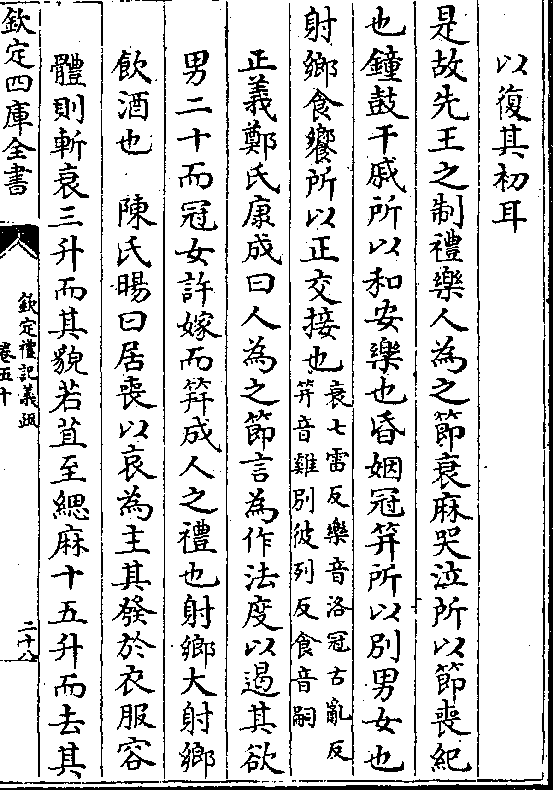 以復其初耳
是故先王之制禮樂人為之節衰麻哭泣所以節喪紀
也鐘鼓干戚所以和安樂也昏姻冠笄所以別男女也
射鄉食饗所以正交接也
衰七雷反樂音洛冠古亂反
笄音雞別彼列反食音嗣
正義鄭氏康成曰人為之節言為作法度以遏其欲
男二十而冠女許嫁而笄成人之禮也射鄉大射鄉
飲酒也 陳氏暘曰居喪以哀為主其發於衣服容
體則斬衰三升而其貌若苴至緦麻十五升而去其
欽定四庫全書
欽定禮記義疏
卷五十
二十八